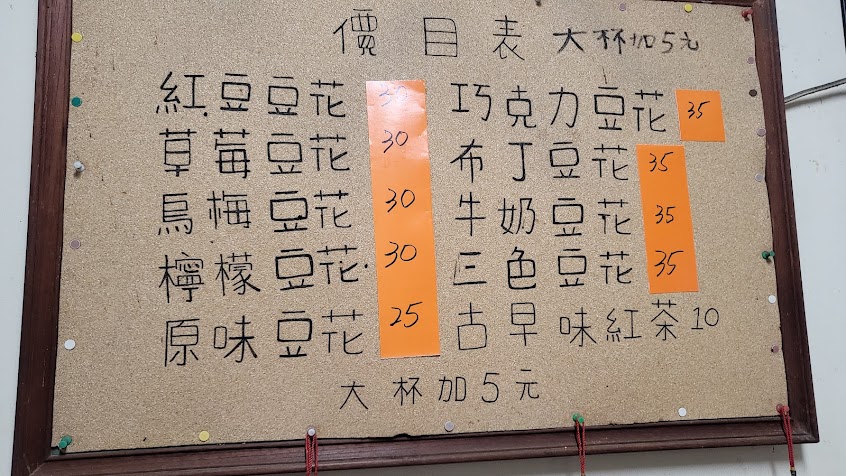 價目表 大杯加5元
紅豆豆花 30 巧克力豆花 35
草莓豆花 30 布丁豆花 35
烏梅豆花 30 牛奶豆花 35
檸檬豆花 30 三色豆花 35
原味豆花 25 古早味紅茶 10
大杯加5元